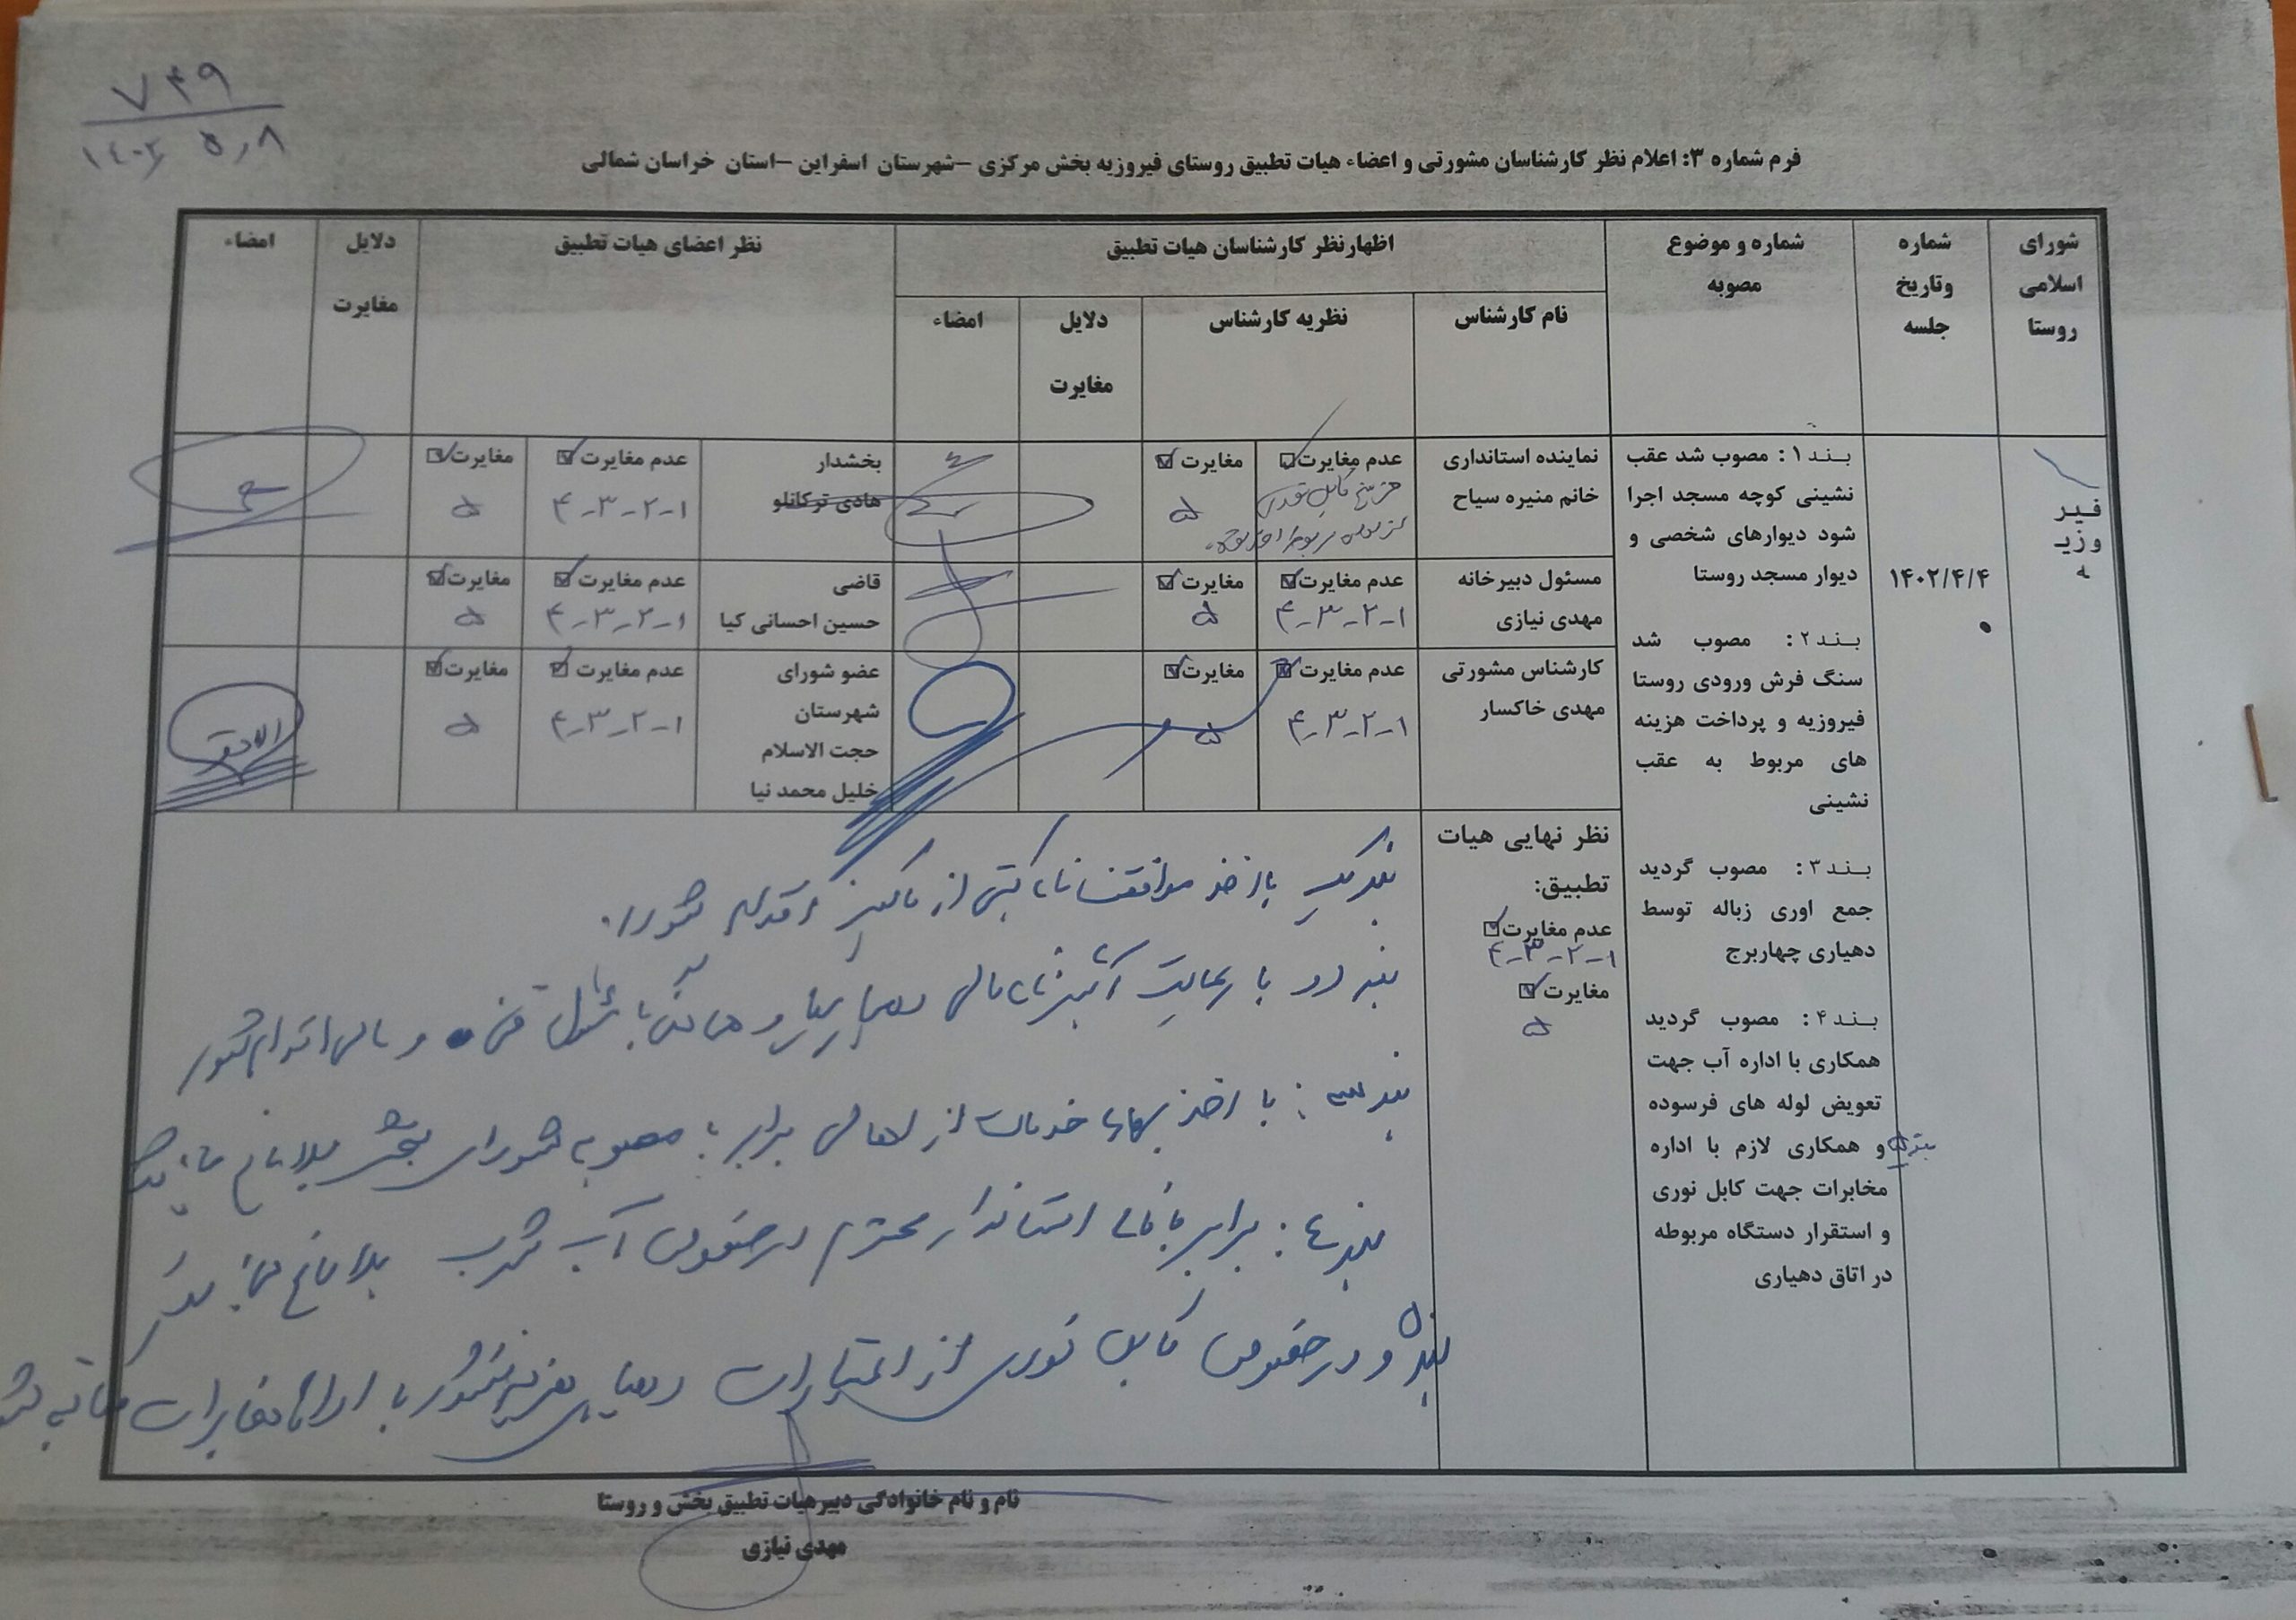 ۷۴۹
۱۴۰۲ ۵٫۸
فرم شماره ۳: اعلام نظر کارشناسان مشورتی و اعضاء هیات تطبیق روستای فیروزیه بخش مرکزی –شهرستان اسفراین –استان خراسان شمالی
شورای اسلامی روستا
شماره وتاریخ جلسه
شماره و موضوع مصوبه
اظهارنظر کارشناسان هیات تطبیق
نظر اعضای هیات تطبیق
دلایل مغایرت
امضاء
نام کارشناس
نظریه کارشناس
دلایل مغایرت
امضاء
فیر
وزی
ه
۱۴۰۲/۴/۴
بند۱: مصوب شد عقب
نشینی کوچه مسجد اجرا
شود دیوارهای شخصی و
دیوار مسجد روستا
بند۲: مصوب شد
سنگ فرش ورودی روستا
فیروزیه و پرداخت هزینه
های مربوط به عقب
نشینی
بند۳: مصوب گردید
جمع اوری زباله توسط
دهیاری چهاربرج
بند۴: مصوب گردید
همکاری با اداره آب جهت
تعویض لوله های فرسوده
بند۵ و همکاری لازم با اداره
مخابرات جهت کابل نوری
و استقرار دستگاه مربوطه
در اتاق دهیاری
نماینده استانداری
خانم منیره سیاح
عدم مغایرت
مغایرت
۵
کابل نوری
بخشدار
هادی ترکانلو
عدم مغایرت
۱-۲-۳-۴
مغایرت
۵
مسئول دبیرخانه
مهدی نیازی
عدم مغایرت
۱-۲-۳-۴
مغایرت
۵
قاضی
حسین احسانی کیا
عدم مغایرت
۱-۲-۳-۴
مغایرت
۵
کارشناس مشورتی
مهدی خاکسار
عدم مغایرت
۱-۲-۳-۴
مغایرت
۵
عضو شورای
شهرستان
حجت الاسلام
خلیل محمد نیا
عدم مغایرت
۱-۲-۳-۴
مغایرت
۵
نظر نهایی هیات
تطبیق:
عدم مغایرت
۱-۲-۳-۴
مغایرت
۵
بند یک با اخذ موافقتنامه کتبی از مالکین اقدام شود.
بند دو با رعایت آئین نامه مالی دهیاریها و هماهنگی با مسئول فنی و مالی اقدام شود
بند سه: با اخذ بهای خدمات از اهالی برابر با مصوبه شورای بخش بلامانع می باشد
بند ۴: برابر نامه استاندار محترم درخصوص آب شرب بلامانع می باشد
بند ۵ و درخصوص کابل نوری از اعتبارات دهیاری هزینه نشود با اداره مخابرات مکاتبه شود
نام و نام خانوادگی دبیرهیات تطبیق بخش و روستا
مهدی نیازی